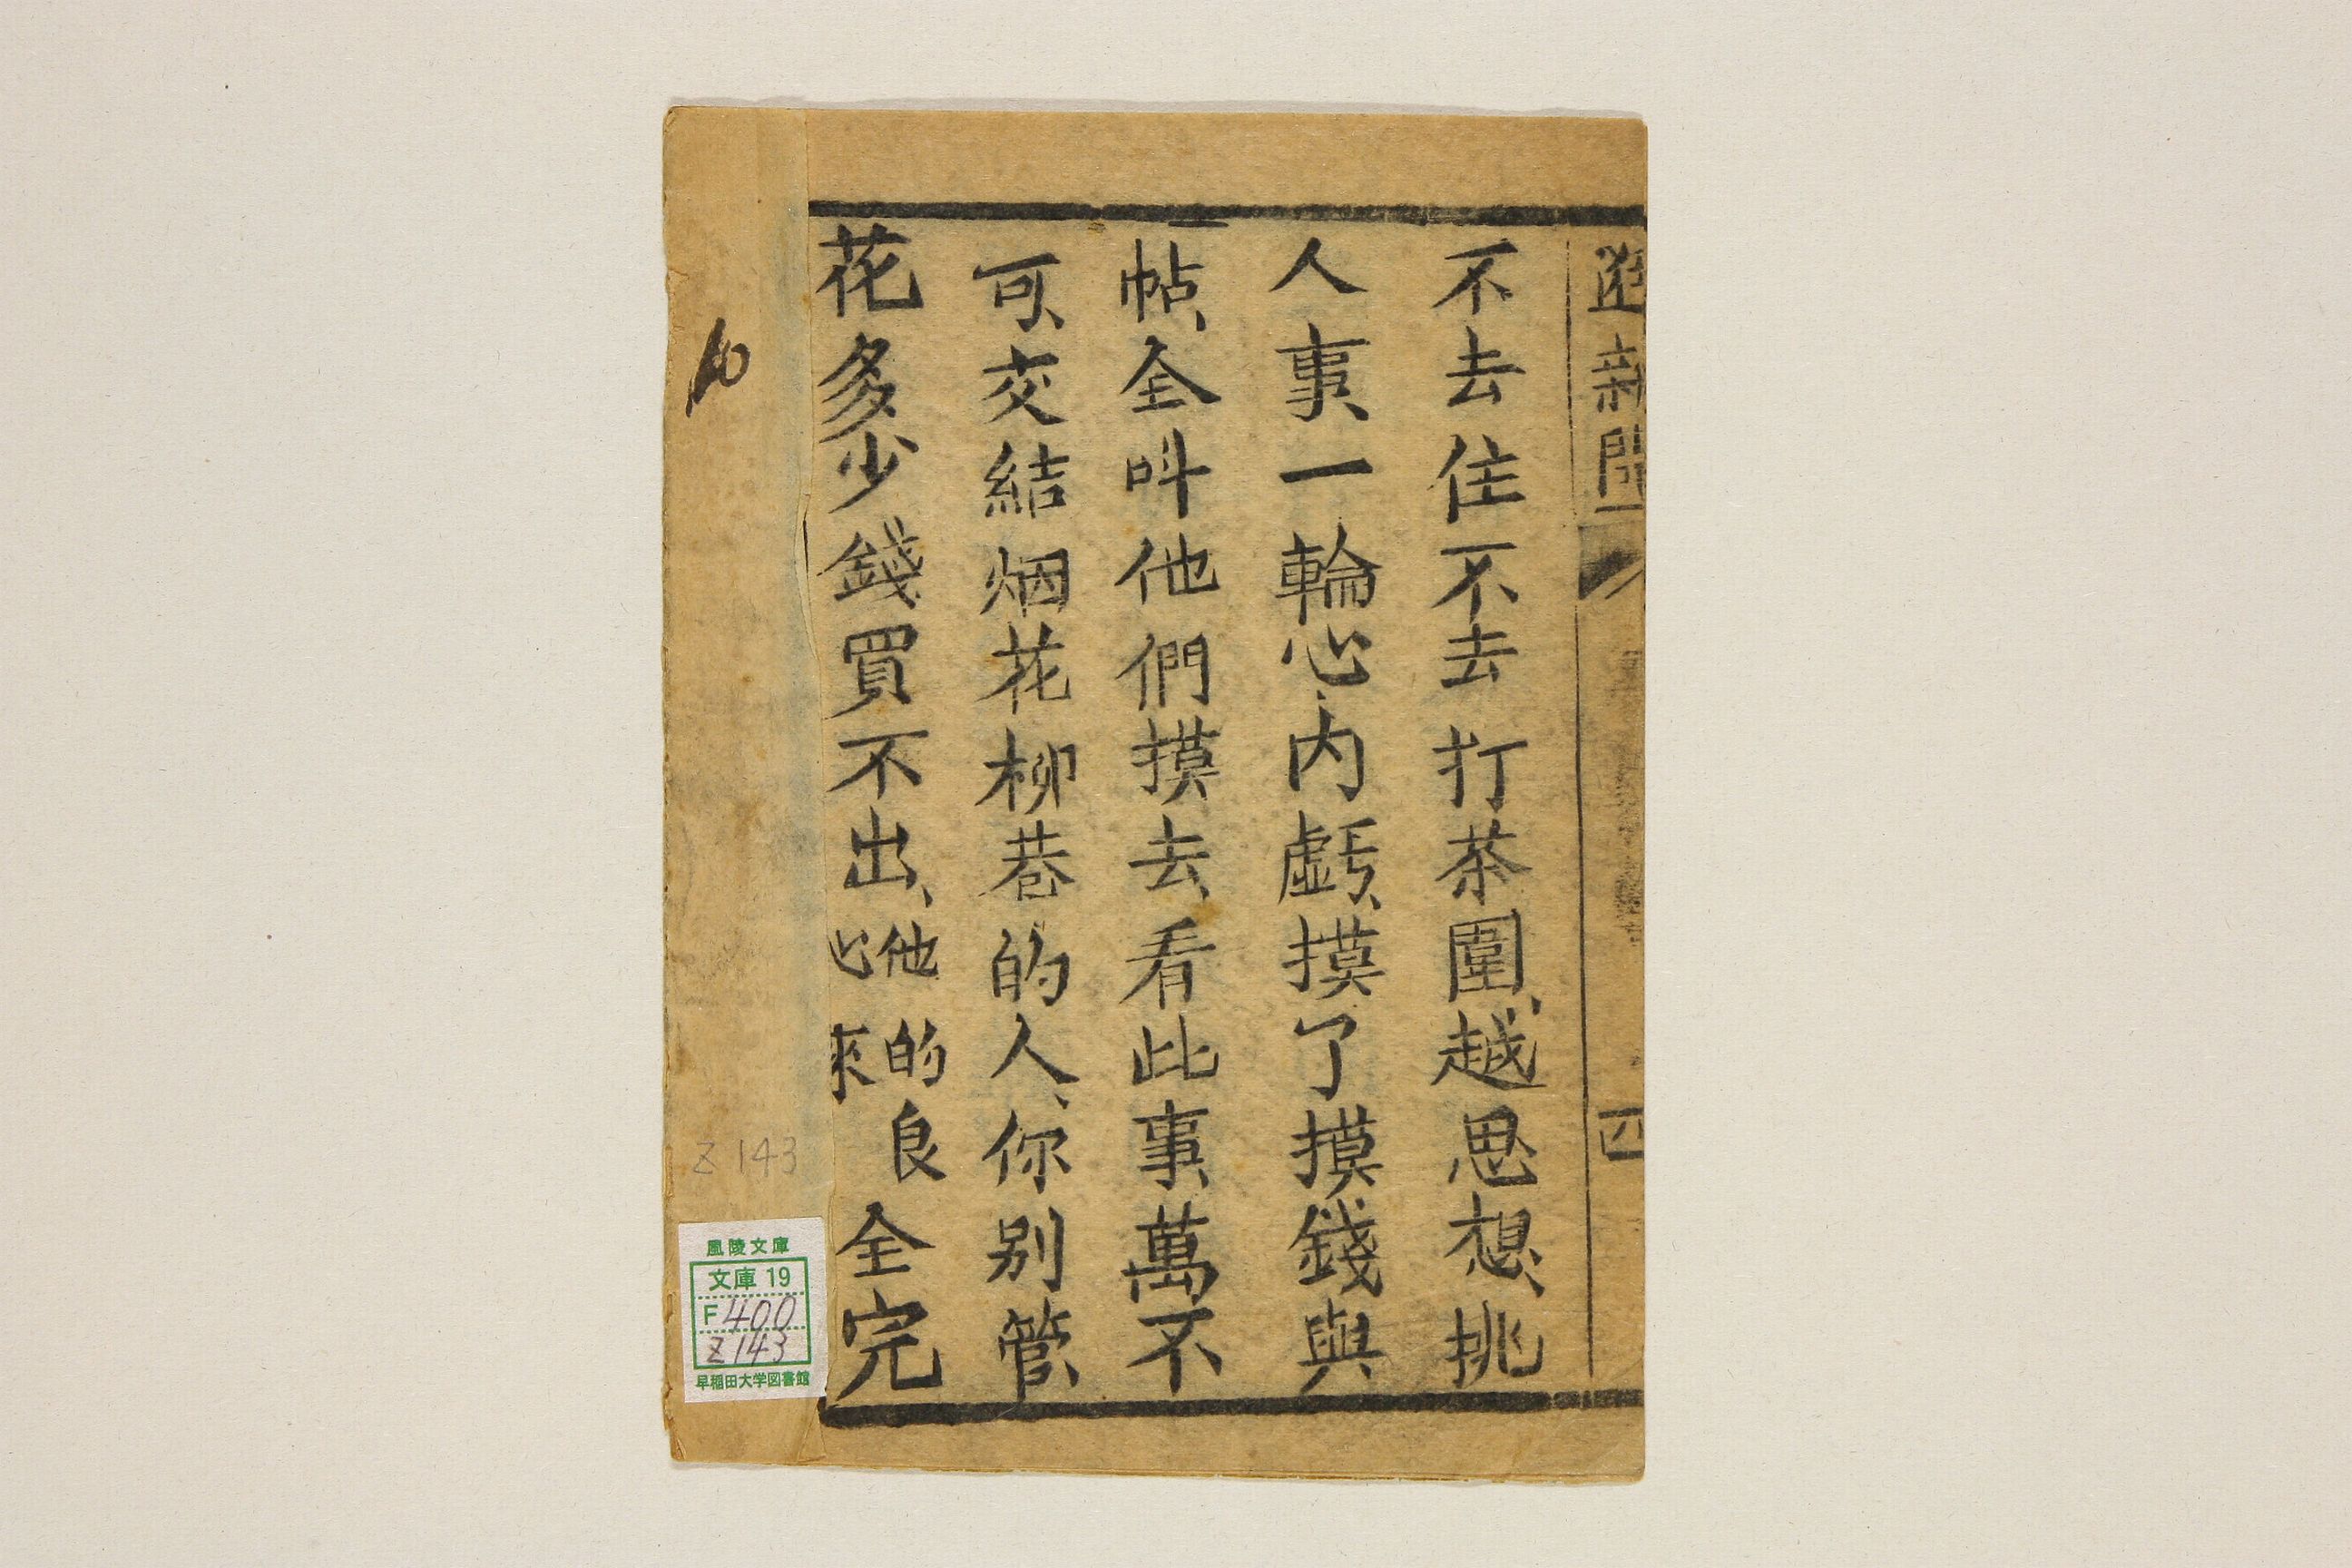 新聞
四
不去住不去打茶圍、越思想、挑
人事、一輪心内虧、摸了摸錢與
帖、全呌他們摸去、看此事、萬不
可、交結烟花柳巷的人、你别管、
花多少錢買不出、他的良心來全完
10
Z 143
風陵文庫
文庫 19
F 400
Z 143
早稲田大学図書館